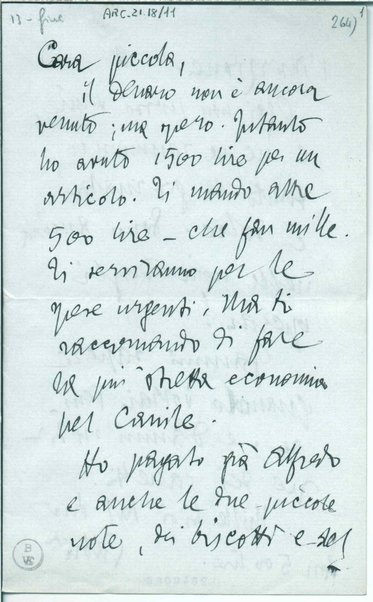 13 - fine
ARC.21.18/11
264) 1
Cara piccola,
il denaro non è ancora
venuto; ma spero. Intanto
ho avuto 1500 lire per un
articolo. Ti mando altre
500 lire – che fan mille.
Ti serviranno per le
spese urgenti. Ma ti
raccomando di fare
la più stretta economia
pel Canile.
Ho pagato già Alfredo
e anche le due piccole
note, dei biscotti e del